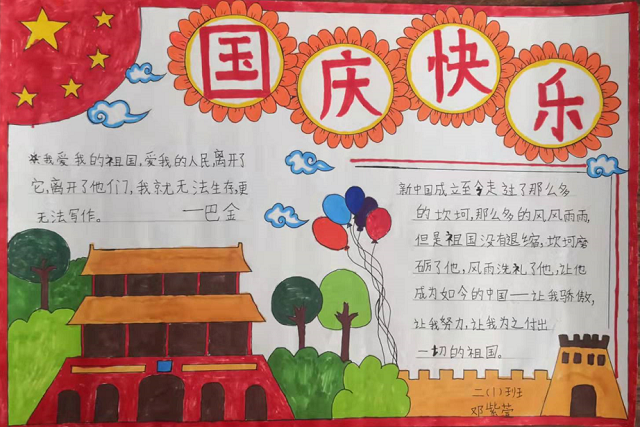 国庆快乐
*我爱我的祖国,爱我的人民,离开了
它,离开了他们,我就无法生存,更
无法写作。 ——巴金
新中国成立至今走过了那么多
的坎坷,那么多的风风雨雨,
但是祖国没有退缩,坎坷磨
砺了他,风雨洗礼了他,让他
成为如今的中国——让我骄傲,
让我努力,让我为之付出
一切的祖国。
二(1)班
邓紫萱